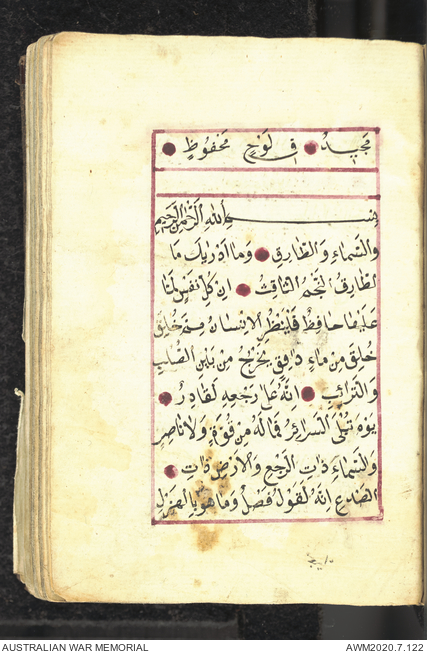 مَجِيدٌ فِى لَوْحٍ مَحْفُوظٍ
بِسْمِ اللهِ الرَّحْمٰنِ الرَّحِيمِ
وَالسَّمَاءِ وَالطَّارِقِ وَمَا اَدْرٰيكَ مَا
الطَّارِقُ النَّجْمُ الثَّاقِبُ اِنْ كُلُّ نَفْسٍ لَمَّا
عَلَيْهَا حَافِظٌ فَلْيَنْظُرِ الْاِنْسَانُ مِمَّ خُلِقَ
خُلِقَ مِنْ مَاءٍ دَافِقٍ يَخْرُجُ مِنْ بَيْنِ الصُّلْبِ
وَالتَّرَائِبِ اِنَّهُ عَلَى رَجْعِهِ لَقَادِرٌ
يَوْمَ تُبْلَى السَّرَائِرُ فَمَالَهُ مِنْ قُوَّةٍ وَلَا نَاصِرٍ
وَالسَّمَاءِ ذَاتِ الرَّجْعِ وَالْاَرْضِ ذَاتِ
الصَّدْعِ اِنَّهُ لَقَوْلٌ فَصْلٌ وَمَا هُوَ بِالْهَزْلِ
AUSTRALIAN WAR MEMORIAL AWM2020.7.122